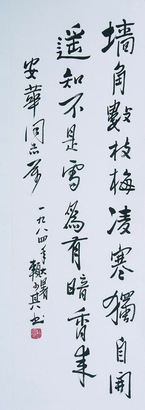 墙角數枝梅凌寒獨自開
遥知不是雪為有暗香来
安華同志屬
一九八四年賴少其书